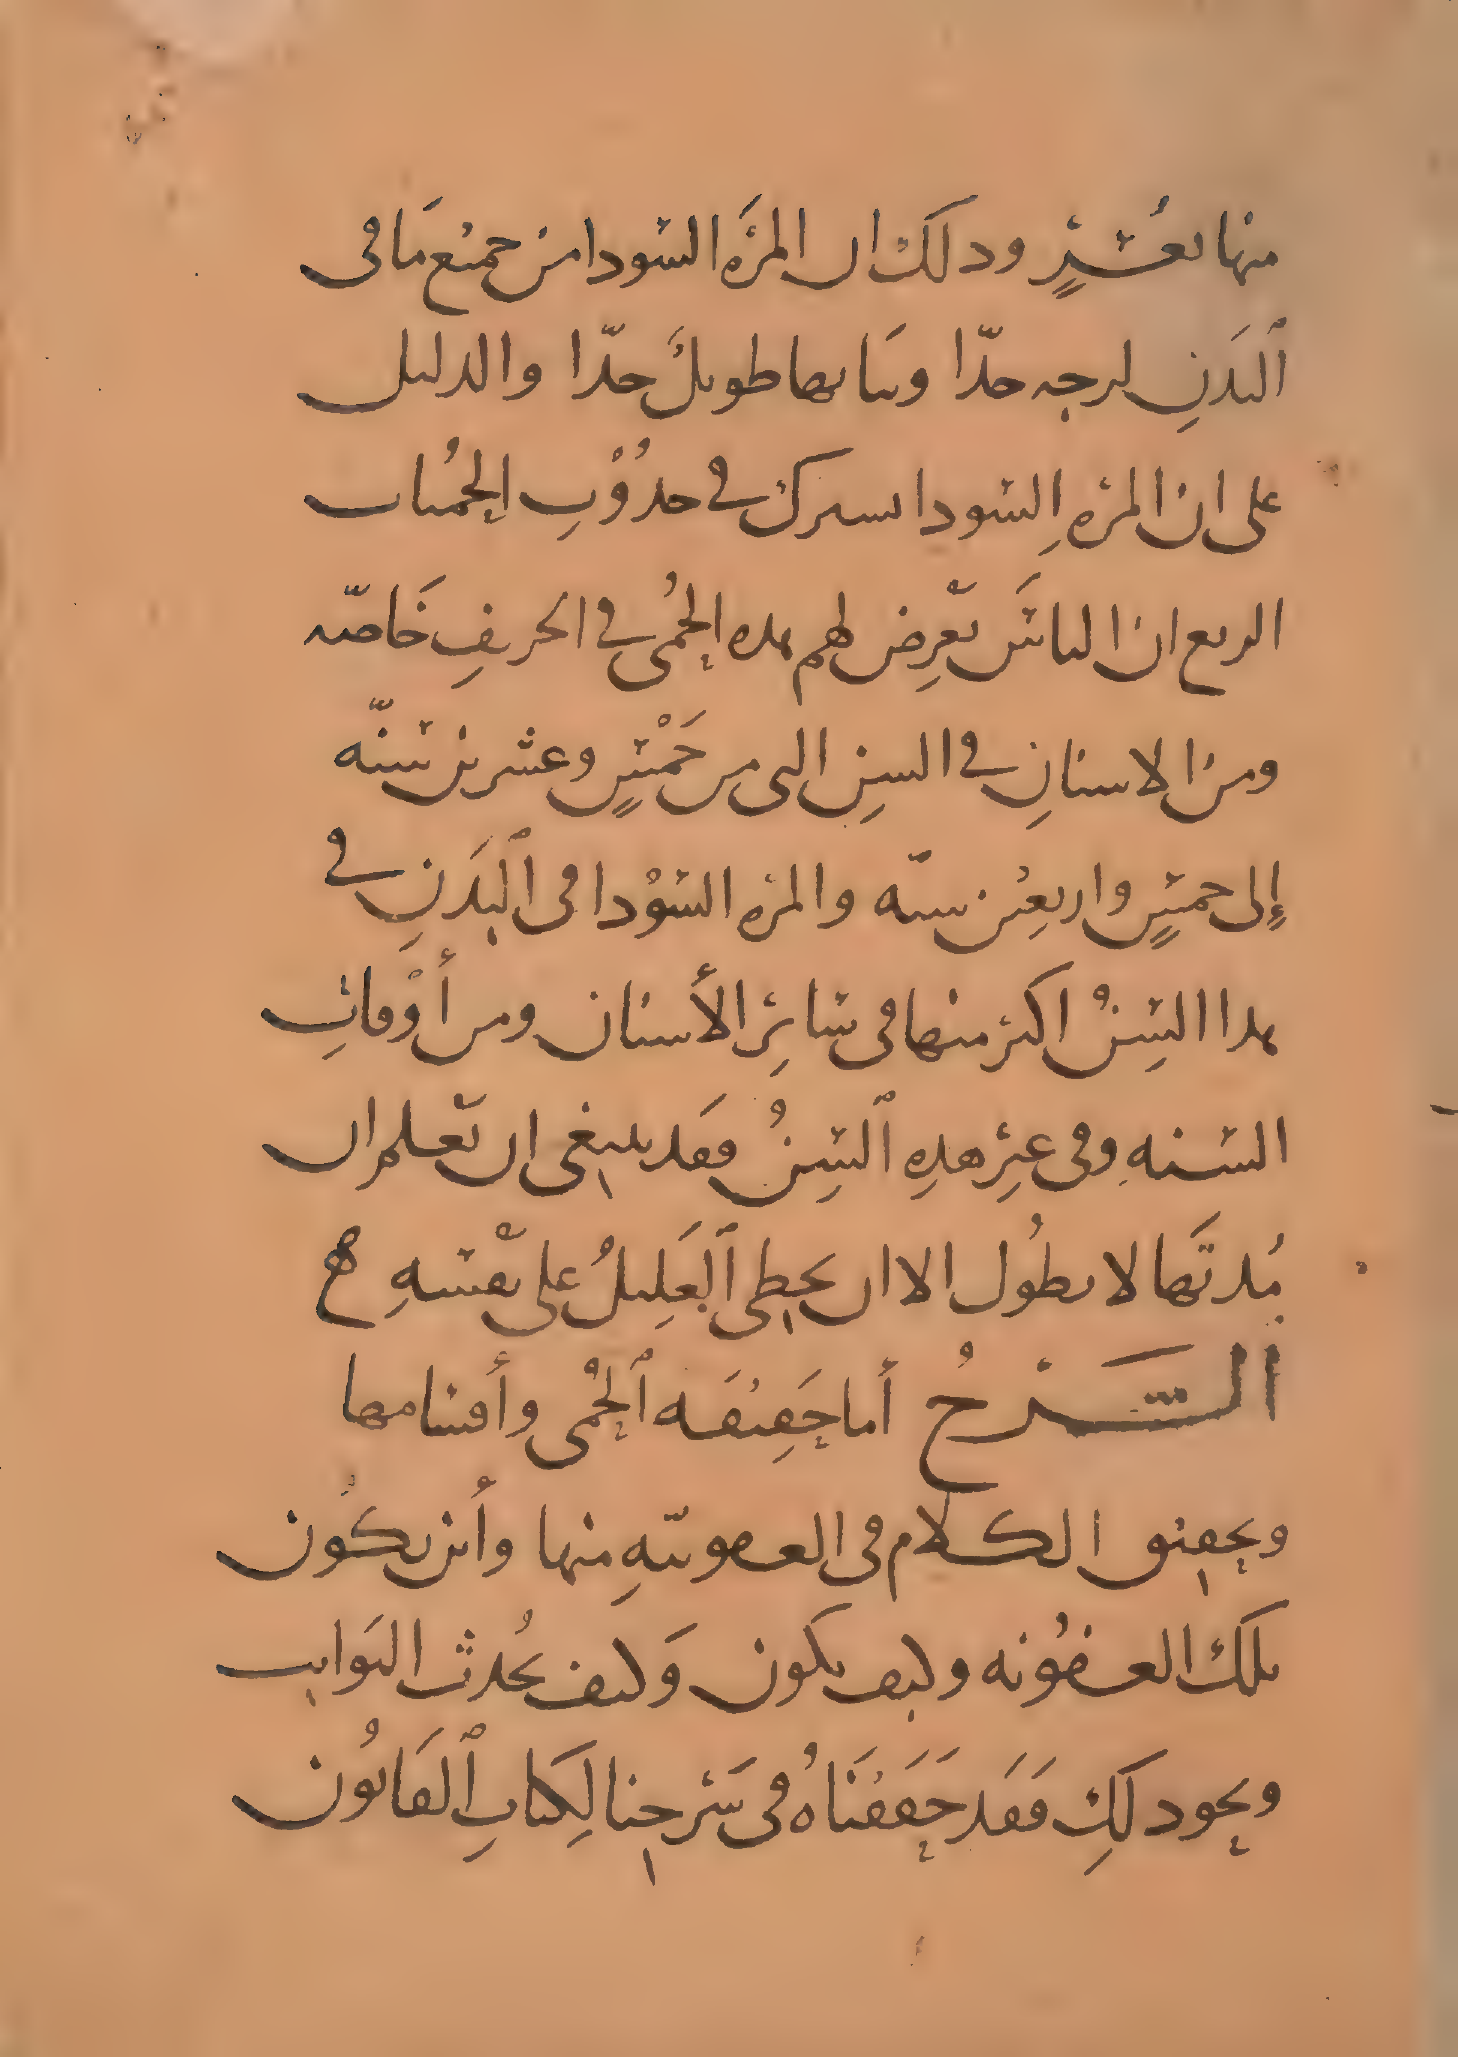 منها بعُسْرٍ وذلك ان المرَّه السودا من جميع مَا في
ٱلبَدَنِ لزجه جدّا وثباتها طويلٌ جدّا والدليل
على ان المرّه السودا تشرك في حدُوْثِ الحُميات
الربع ان الناسَ تعْرِض لهم هذه الحُمى في الخريفِ خَاصّه
ومن الاسنانِ في السنِ التي من خَمْسٍ وعشرين سنّه
إلى خمسٍ واربعِين سنّه والمرّه السوْدا في ٱلبَدَنِ في
هذا السِنُ اكثر منها في سَائِر الأسنان ومن أوْقاتِ
السنهِ وفي غيِر هذِهِ ٱلسِنُ فقَد ينبغي ان تعْلم ان
مُدتَها لا تطُول الا ان يخطي ٱلعَلِيلُ على نفْسهِ
الشَرْحُ أما حَقِيقَه ٱلحُمْى وأقسامها
وتحقيق الكلام في العفونّهِ منها وأين تكُون
تلك العفُونه وكيف تكون وَكيف تحُدث النَوايب
ونحو ذلكِ فقَد حَقَقْنَاهُ في شَرْحِنا لِكتابِ ٱلقَانُون